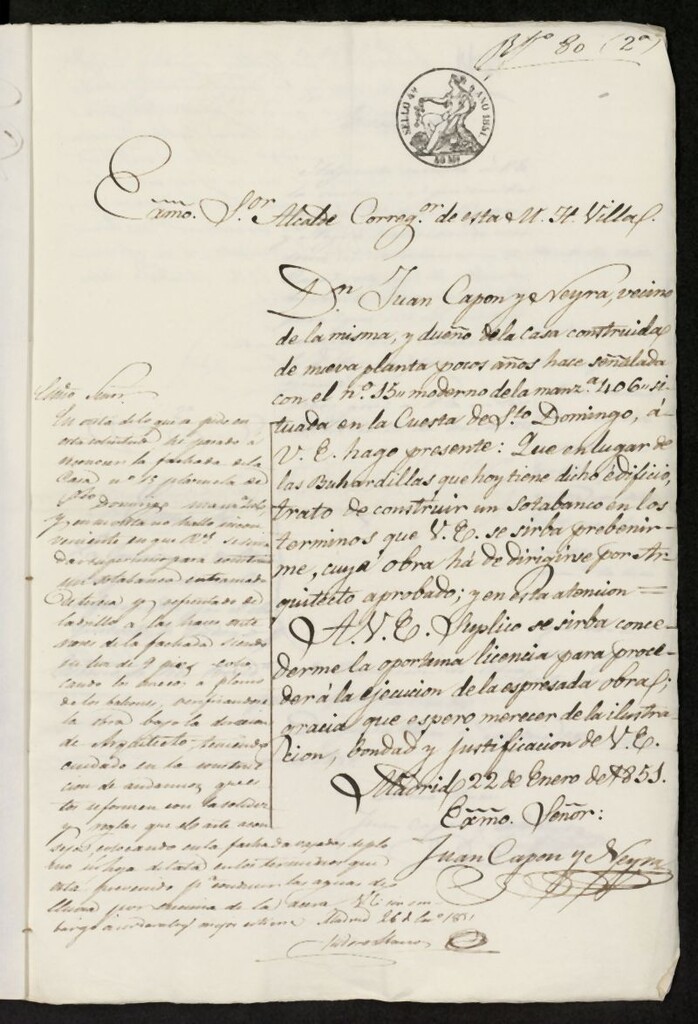 80 (2º)
SELLO 4º AÑO 1851.
40 MS
Exmo. S.or Alcalde Correg.or de esta M. H. Villa.
D.n Juan Capon y Neyra, vecino
de la misma, y dueño de la casa construida
de nueva planta pocos años hace señalada
con el nº. 15 moderno de la manz.a 406 si-
tuada en la Cuesta de S.to Domingo, á
V. E. hago presente: Que en lugar de
las Buhardillas que hoy tiene dicho édificio,
trato de construir un sotabanco en los
terminos que V. E. se sirba prebenir-
me, cuya obra há de dirigirse por Ar-
quitecto aprobado; y en esta atencion =
A V. E. Suplico se sirba conce-
derme la oportuna licencia para proce-
der á la ejecucion de la espresada obra;
gracia que espero merecer de la ilustra-
cion, bondad y justificacion de V. E.
Madrid 22 de Enero de 1851.
Exmo. Señor:
Juan Capon y Neyra
Exmo Señor
En vista de lo que se pide en
esta solicitud he pasado a
reconocer la fachada de la
Casa nº 15 plazuela de
Sto Domingo
y en su vista no hallo incon-
veniente en que V.E. se sirva
dar su permiso para construir
un sotabanco entramado
de ladrillo a las haces
de la fachada siendo
su luz de 9 pies colo-
cando los huecos a plomo
de los balcones
la obra bajo la direccion
de Arquitecto teniendo
cuidado en la construc-
cion de andamios, que es-
tos se formen con la solidez
y reglas que el arte acon-
seja, colocando en la fachada
de lata en los terminos que
esta prevenido p.a conducir las aguas de
lluvia por encima de la acera V.E. sin em-
bargo acordará lo mejor Madrid 26 de En.o 1851